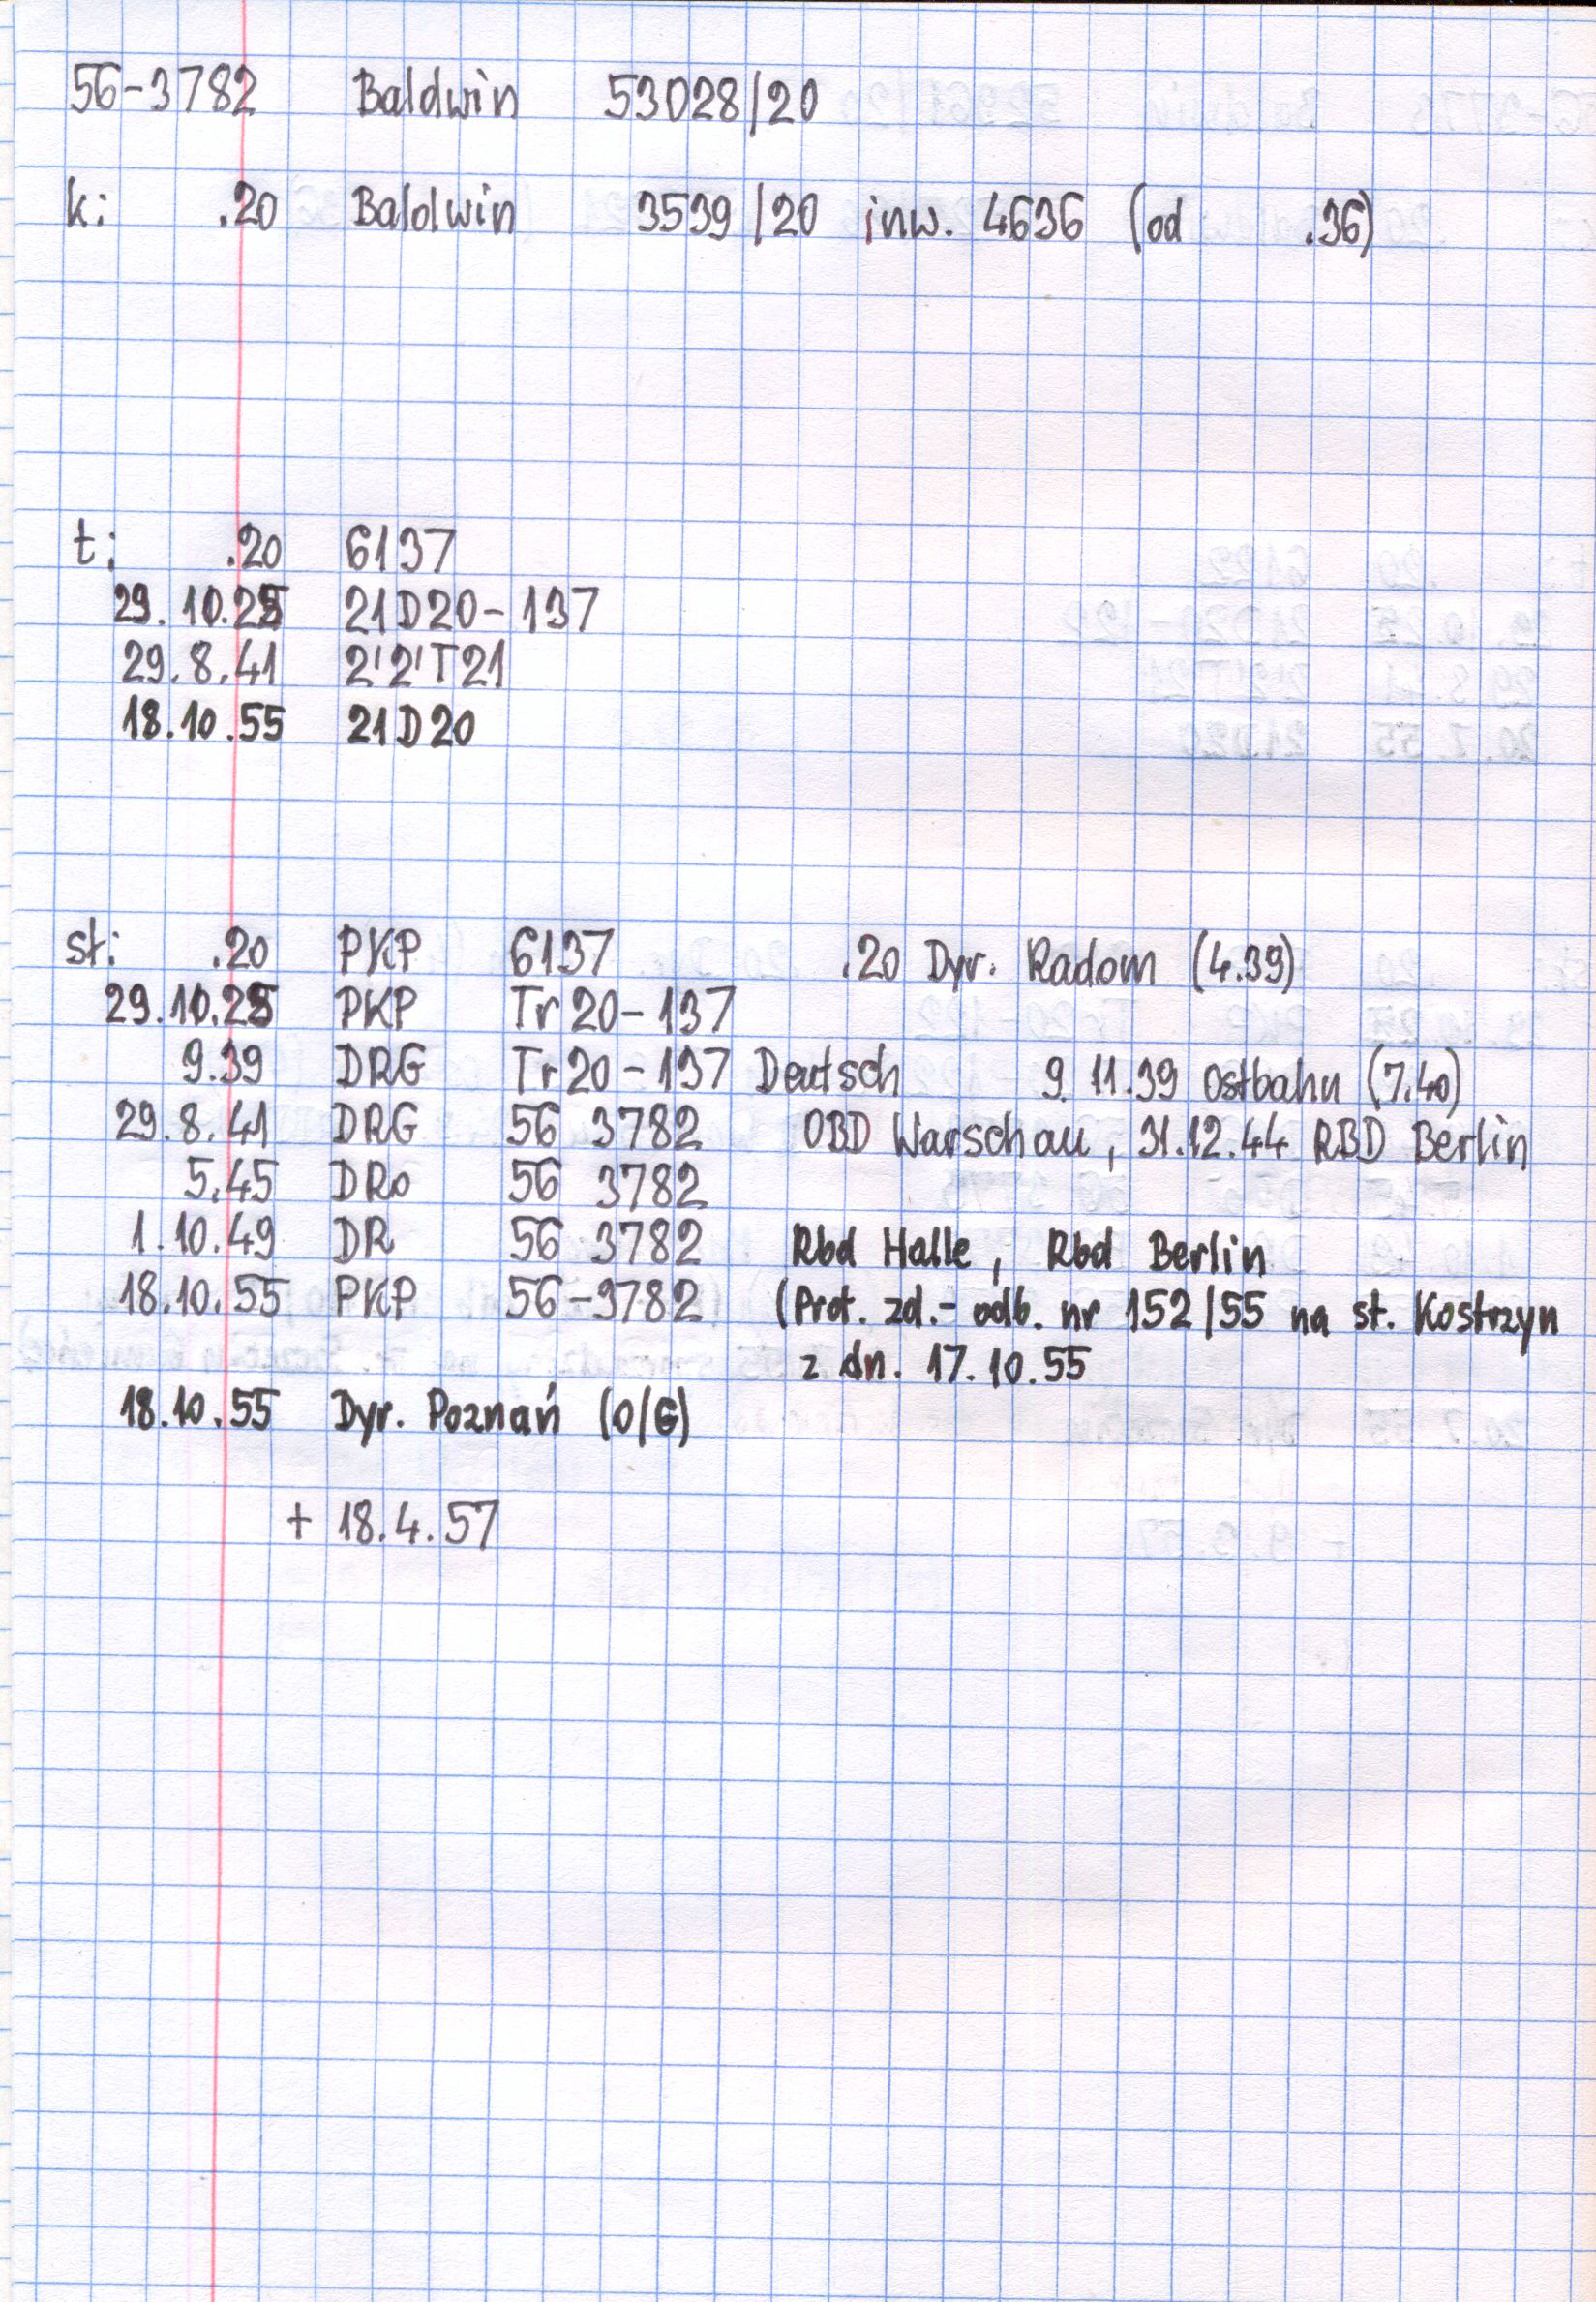 56-3782 Baldwin 53028/20
k: .20 Baldwin 3539/20 inw. 4636 (od .36)
t: .20 6137
29.10.25 21D20-137
29.8.41 2'2'T21
18.10.55 21D20
st: .20 PKP 6137 .20 Dyr. Radom (4.39)
29.10.25 PKP Tr20-137
9.39 DRG Tr20-137 Deutsch 9.11.39 Ostbahn (7.40)
29.8.41 DRG 56 3782 OBD Warschau, 31.12.44 RBD Berlin
5.45 DRo 56 3782
1.10.49 DR 56 3782 Rbd Halle, Rbd Berlin
18.10.55 PKP 56-3782 (Prot. zd.-odb. nr 152/55 na st. Kostrzyn
z dn. 17.10.55
18.10.55 Dyr. Poznań (O/G)
+ 18.4.57